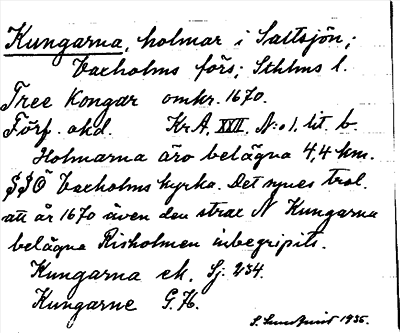 Kungarna, holmar i Saltsjön;
Vaxholms förs; Sthlms l.
Tree Kongar omkr. 1670.
Förf. okd. Kr.A, XXII, N:o 1, lit. b.
Holmarna äro belägna 4,4 km.
SSÖ Vaxholms kyrka. Det synes trol.
att år 1670 även den strax N Kungarna
belägna Risholmen inbegripits.
Kungarna ek. Sj. 234.
Kungarne G.K.
S. Sundqvist 1935.